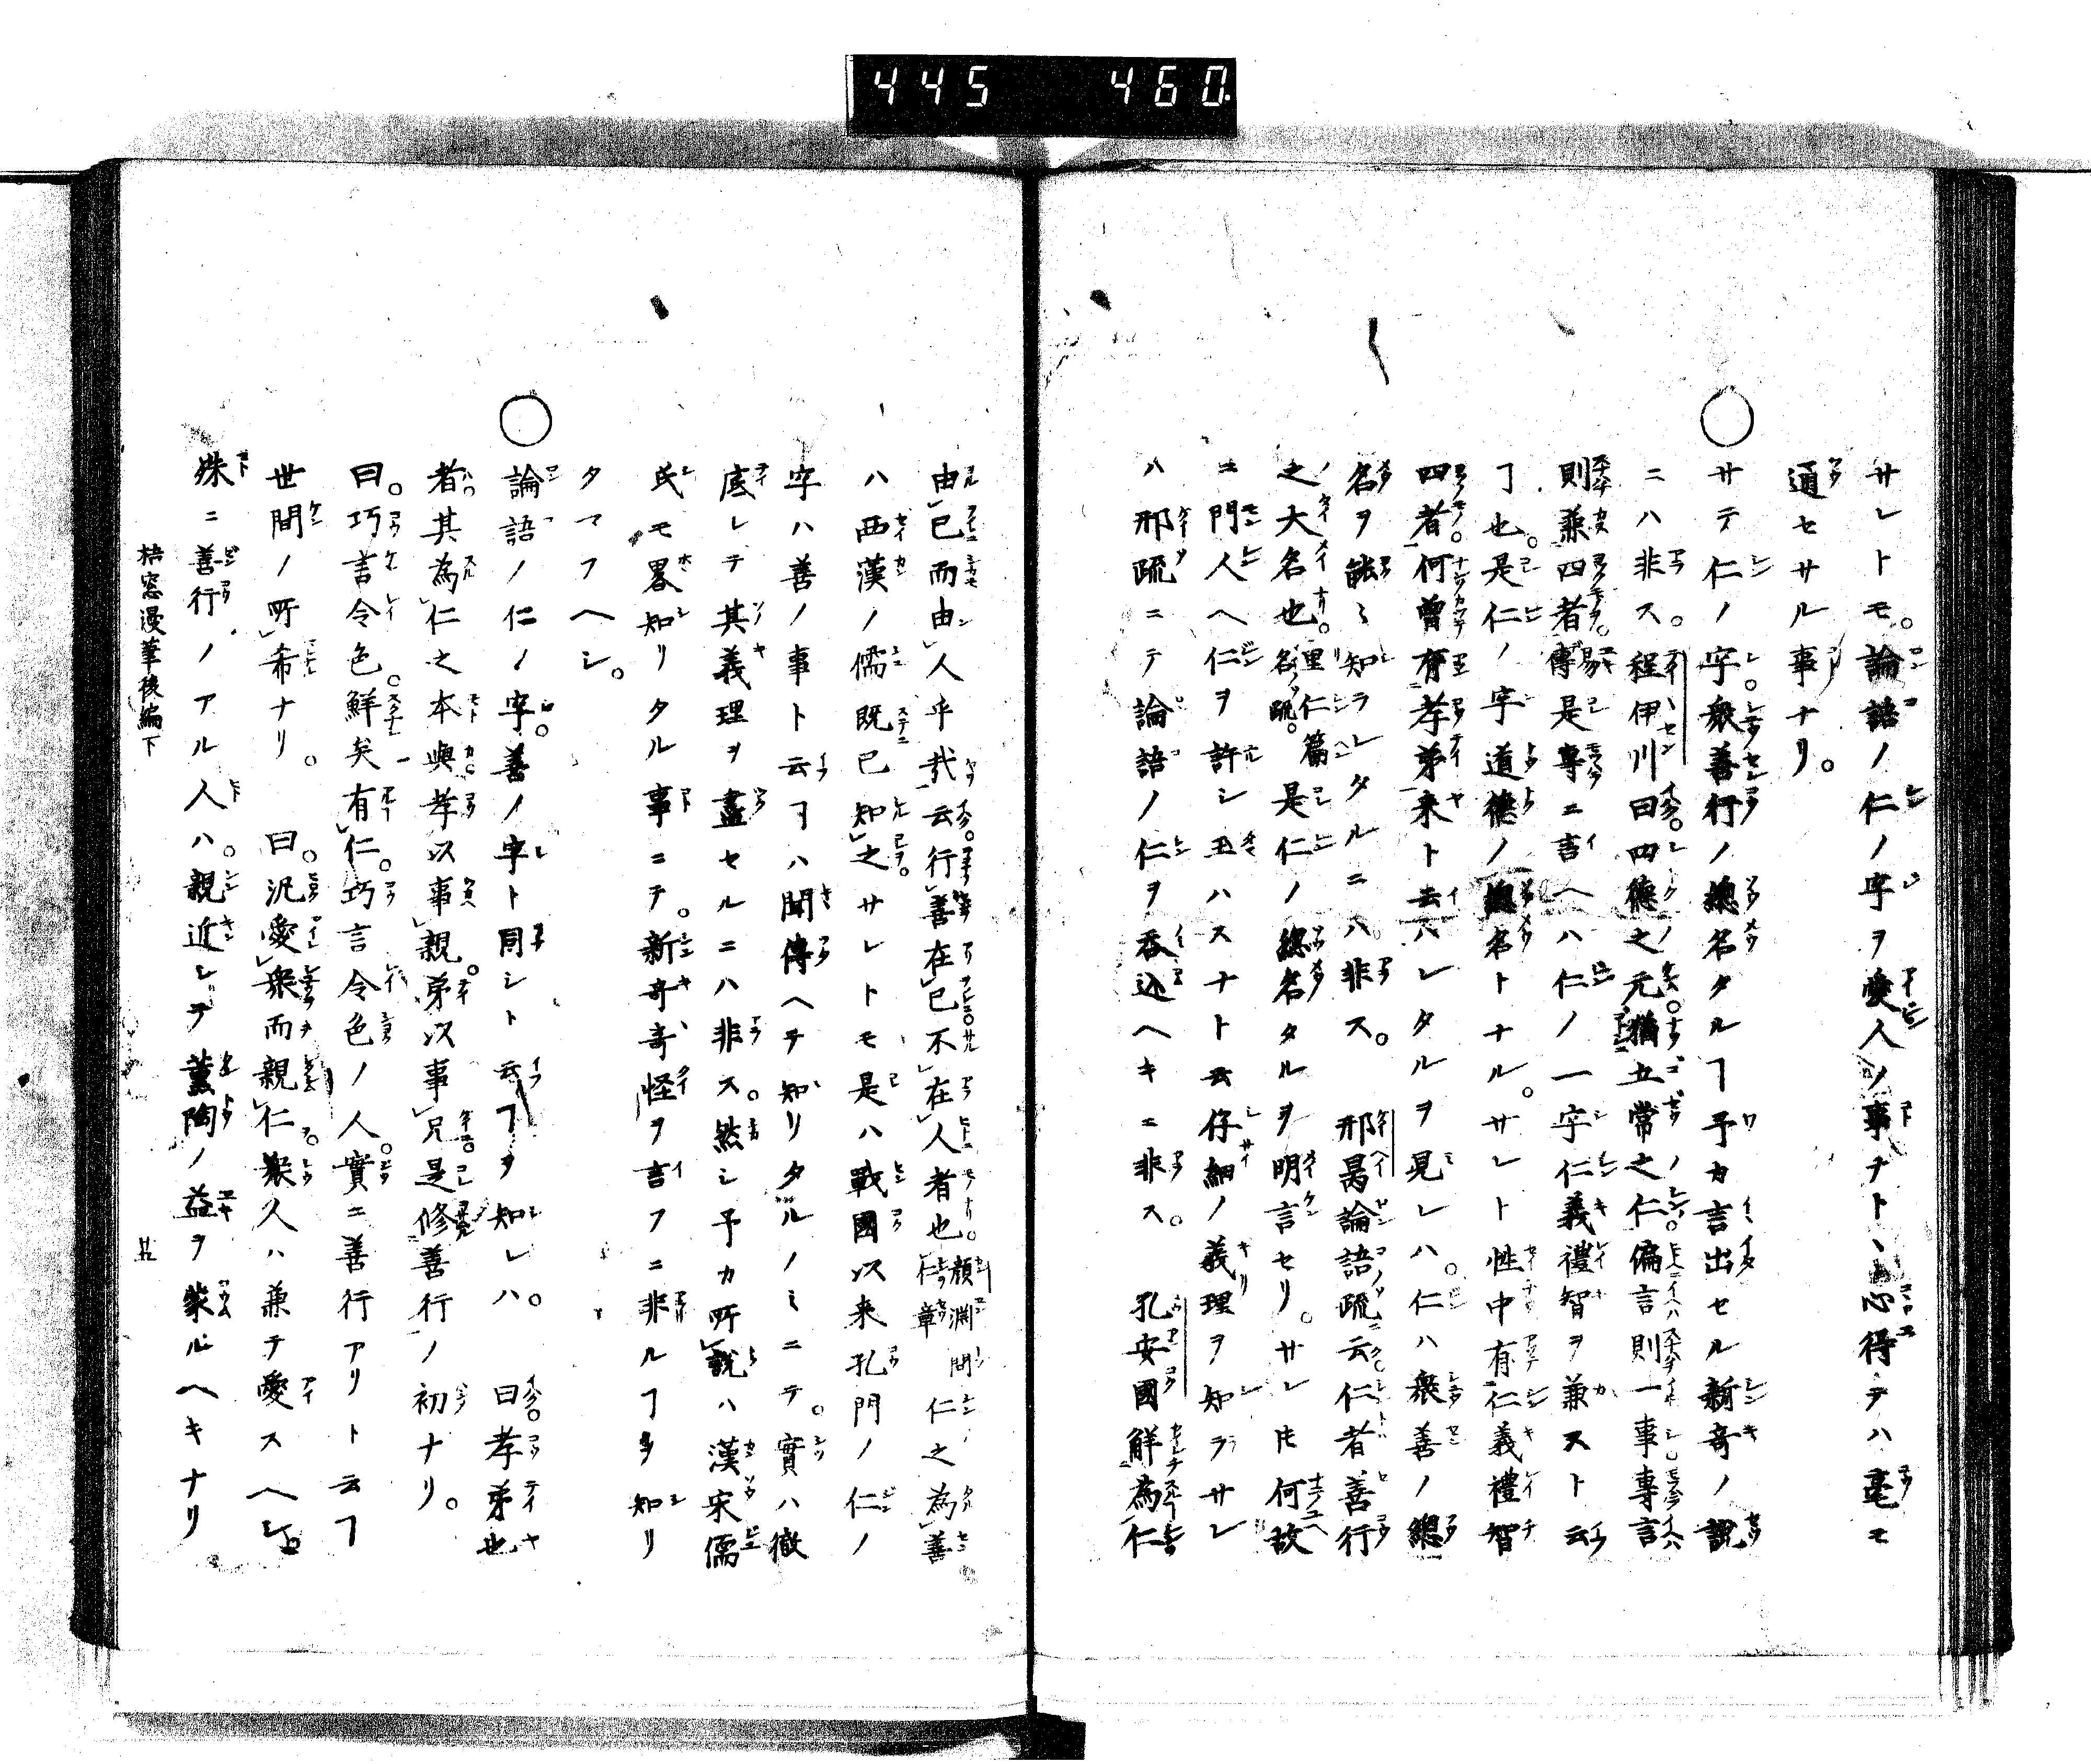 445 460
サレトモ。論語ノ仁ノ字ヲ愛人ノ事ナトヽ心得テハ毫モ
通セサル事ナリ。
○サテ仁ノ字。衆善行ノ總名タルヿ予カ言出セル新奇ノ說
ニハ非ス。程伊川曰四德之元。猶五常之仁。偏言則一事專言
則兼四者。易傳是專ニ言ヘハ仁ノ一字仁義禮智ヲ兼スト云
ヿ也。是仁ノ字道德ノ總名トナル。サレト性中有仁義禮智
四者。何曾有孝弟来ト云ハレタルヲ見レハ。仁ハ衆善ノ總
名ヲ能ミ知ラレタルニハ非ス。 邢昺論語疏云。仁者善行
之大名也。里仁篇名ノ疏。是仁ノ總名タルヲ明言セリ。サレ𪜈何故
ニ門人ヘ仁ヲ許シ玉ハスナト云仔細ノ義理ヲ知ラサレ
ハ邢疏ニテ論語ノ仁ヲ呑込ヘキニ非ス。 孔安國解為仁
由己而由人乎哉云。行善在己不在人者也。顔淵問仁章 仁之為善
ハ西漢ノ儒既已知之。サレトモ是ハ戰國以来孔門ノ仁ノ
字ハ善ノ事ト云ヿハ聞傳ヘテ知リタルノミニテ。實ハ徹
底シテ其義理ヲ盡セルニハ非ス。然シ予カ所說ハ漢宋儒
氏モ畧知リタル事ニテ。新奇奇怪ヲ言フニ非ルヿヲ知リ
タマフヘシ。
○論語ノ仁ノ字。善ノ字ト同シト云フヿヲ知レハ。 曰孝弟也
者。其為仁之本與。孝以事親。弟以事兄是修善行ノ初ナリ。
曰。巧言令色。鮮矣有仁。巧言令色ノ人。實ニ善行アリト云ヿ
世間ノ所希ナリ。 曰。汎愛衆而親仁。衆人ハ兼テ愛スヘシ
殊ニ善行ノアル人ハ。親近シテ薰陶ノ益ヲ蒙ルヘキナリ
梧窓漫筆後編下 廿九